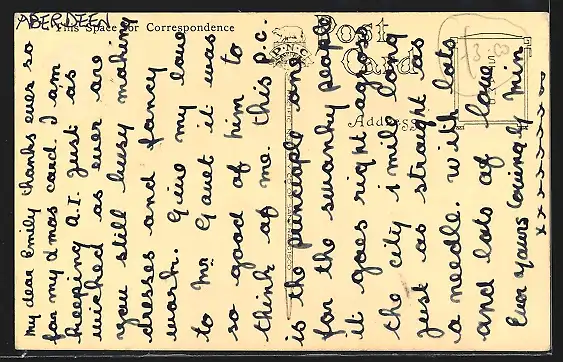 ABERDEEN
This Space for Correspondence
Post
Card
P.N.C.
Address
My dear Emily thanks ever so
for my Xmas card. I am
keeping A.I. Just as
wicked as ever are
you still busy making
dresses and fancy
work. Give my love
to Mr Gauet it was
so good of him to
think of me. this P.C.
is the principle one
for the swanky people
it goes right across
the city 1 mile long
Just as straight as
a needle. with lots
and lots of love
Ever yours lovingly Min
x x x x x x x x x